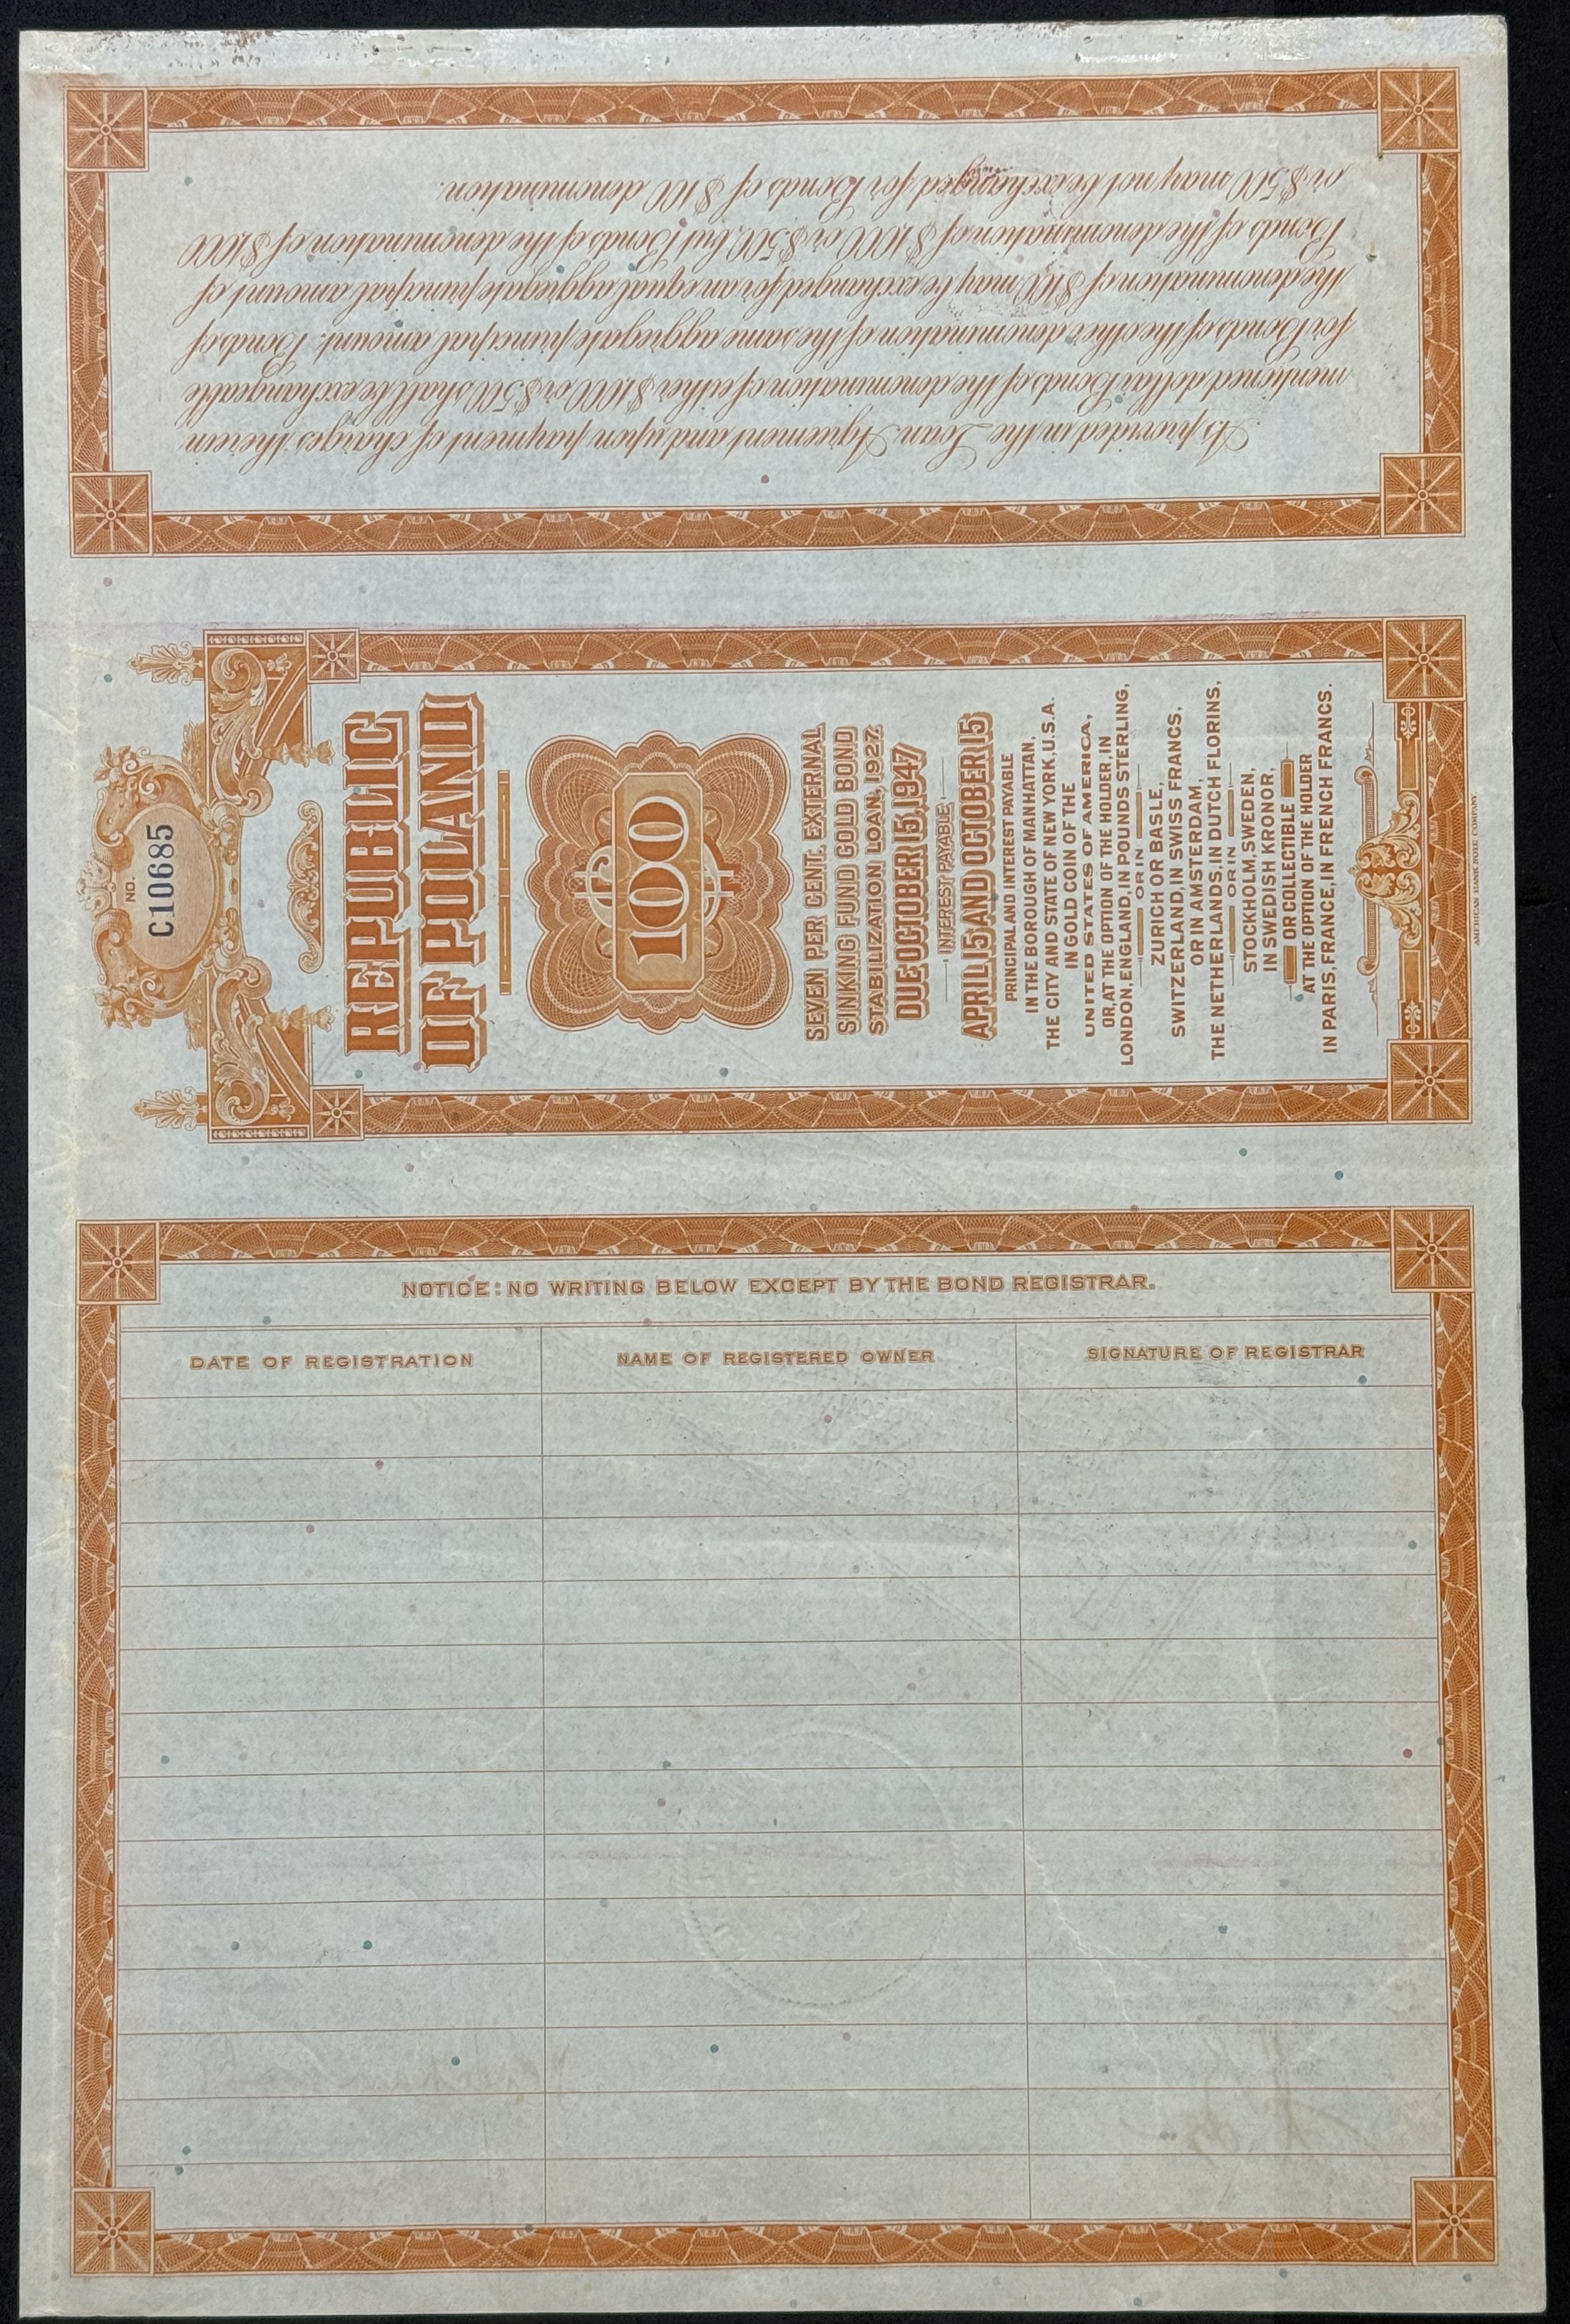 As provided in the Loan Agreement and upon payment of charges therein
mentioned dollar Bonds of the denomination of either $1000 or $500 shall be exchangeable
for Bonds of the other denomination of the same aggregate principal amount. Bonds of
the denomination of $100 may be exchanged for an equal aggregate principal amount of
Bonds of the denomination of $1000 or $500, but Bonds of the denomination of $1000
or $500 may not be exchanged for Bonds of $100 denomination.
NO.
C10685
REPUBLIC
OF POLAND
$100
SEVEN PER CENT. EXTERNAL
SINKING FUND GOLD BOND
STABILIZATION LOAN, 1927.
DUE OCTOBER 15, 1947
INTEREST PAYABLE
APRIL 15 AND OCTOBER 15
PRINCIPAL AND INTEREST PAYABLE
IN THE BOROUGH OF MANHATTAN,
THE CITY AND STATE OF NEW YORK, U.S.A.
IN GOLD COIN OF THE
UNITED STATES OF AMERICA,
OR, AT THE OPTION OF THE HOLDER, IN
LONDON, ENGLAND, IN POUNDS STERLING,
OR IN
ZURICH OR BASLE,
SWITZERLAND, IN SWISS FRANCS,
OR IN AMSTERDAM,
THE NETHERLANDS, IN DUTCH FLORINS,
OR IN
STOCKHOLM, SWEDEN,
IN SWEDISH KRONOR,
OR COLLECTIBLE
AT THE OPTION OF THE HOLDER
IN PARIS, FRANCE, IN FRENCH FRANCS.
AMERICAN BANK NOTE COMPANY.
NOTICE: NO WRITING BELOW EXCEPT BY THE BOND REGISTRAR.
DATE OF REGISTRATION
NAME OF REGISTERED OWNER
SIGNATURE OF REGISTRAR